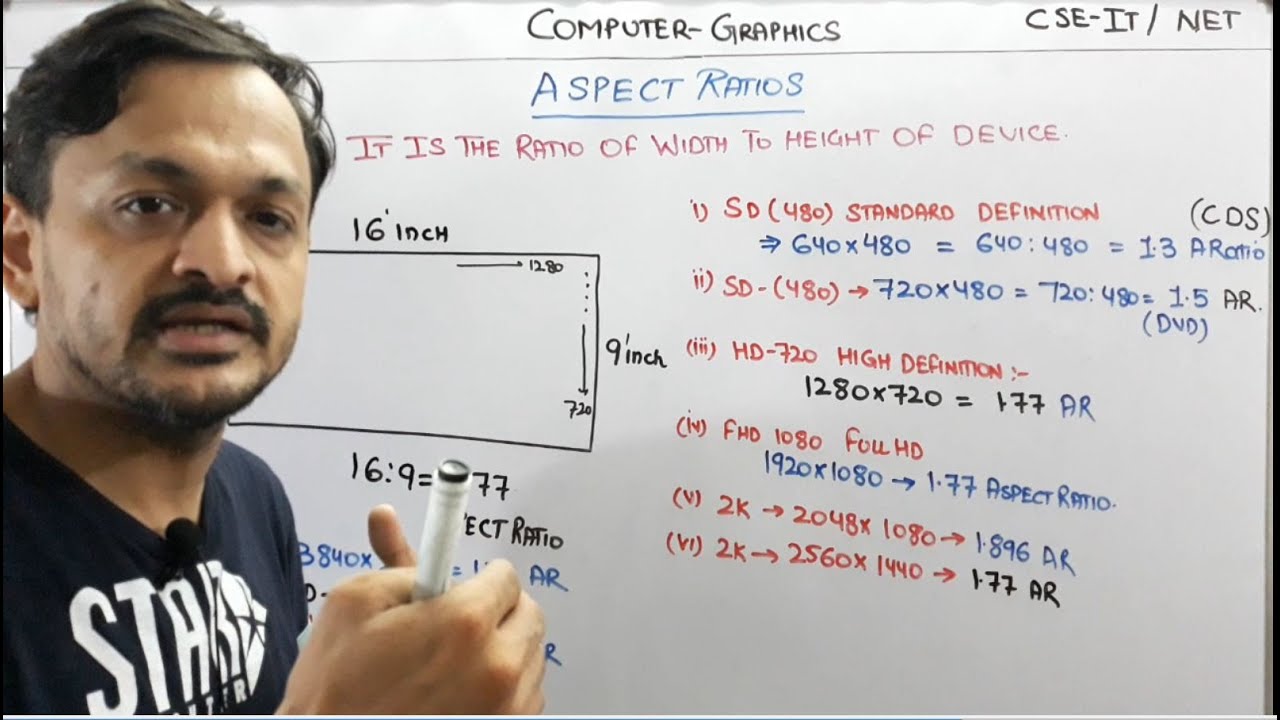 COMPUTER-GRAPHICS
CSE-IT / NET
ASPECT RATIOS
IT IS THE RATIO OF WIDTH TO HEIGHT OF DEVICE.
16 inch
1280
720
9 inch
16:9= 77
ECT RATIO
3840x = 1 AR
D-
R
i) SD (480) STANDARD DEFINITION (CDS)
⇒ 640x480 = 640:480 = 1.3 ARatio
ii) SD-(480) → 720x480 = 720:480= 1.5 AR.
(DVD)
(iii) HD-720 HIGH DEFINITION :-
1280x720 = 1.77 AR
(iv) FHD 1080 FULL HD
1920x1080 → 1.77 ASPECT RATIO.
(v) 2K → 2048x1080 → 1.896 AR
(vi) 2K → 2560x1440 → 1.77 AR